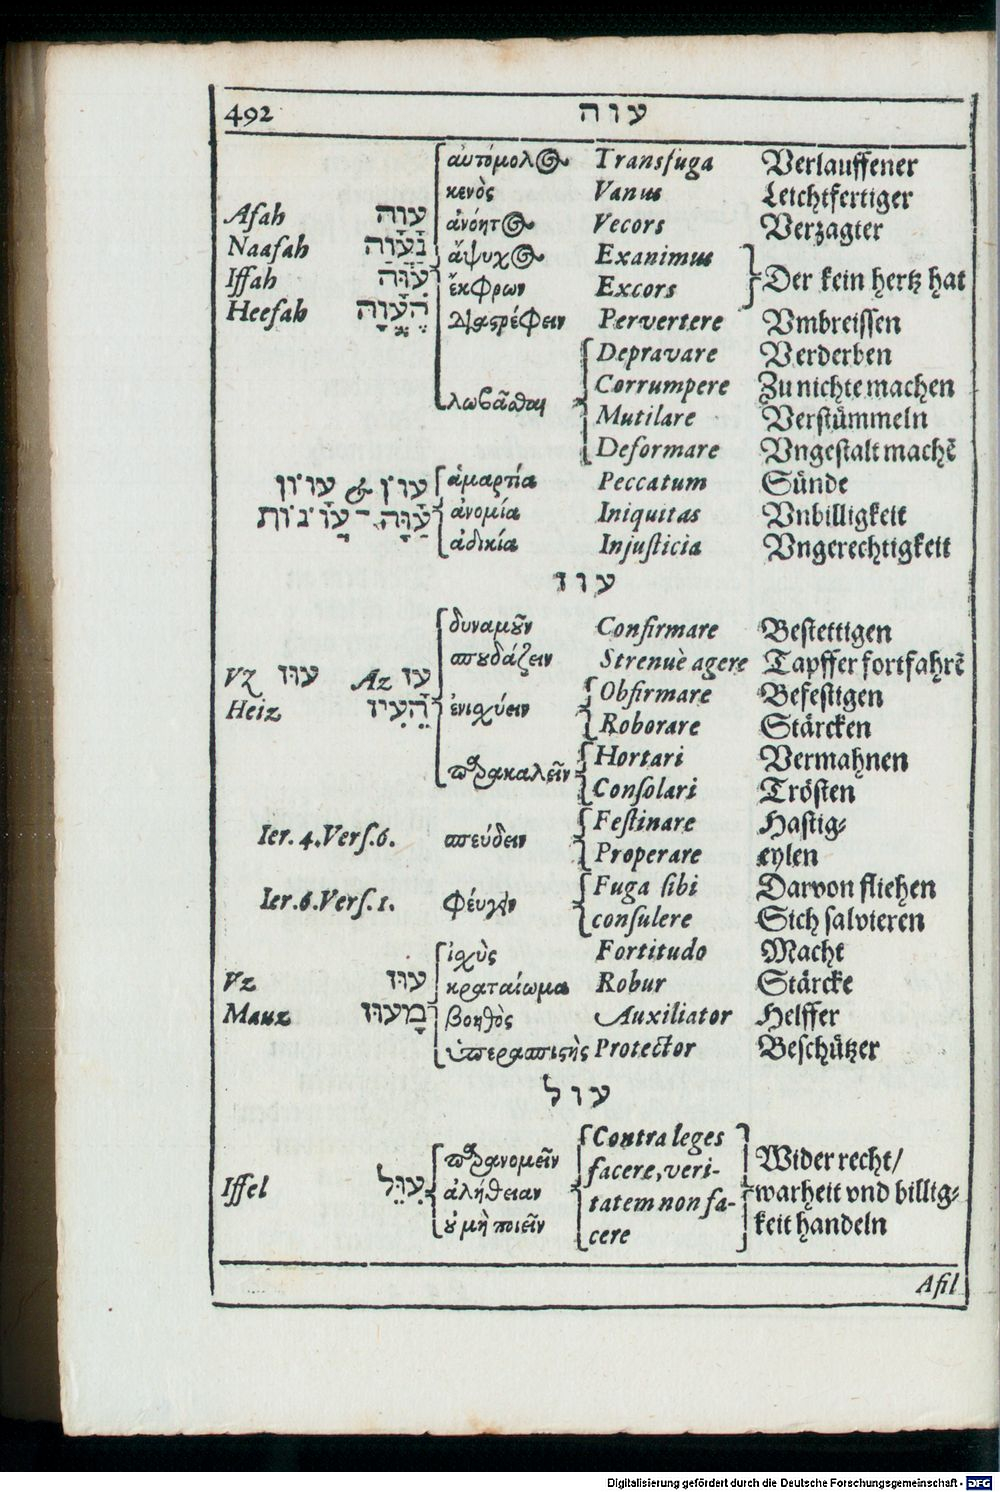 492 עוה
αὐτόμολος Transfuga Verlauffener
κενὸς Vanus Leichtfertiger
Afah עָוָה ἀνόητος Vecors Verzagter
Naafah נַעֲוָה ἄψυχος Exanimus
Iffah עִוָּה ἔκφρων Excors Der kein hertz hat
Heefah הֶעֱוָה διαςρέφειν Pervertere Vmbreissen
Depravare Verderben
λωβᾶσθαι Corrumpere Zu nichte machen
Mutilare Verstümmeln
Deformare Vngestalt machẽ
עָוֹן & עָווֹן ἁμαρτία Peccatum Sünde
ἀνομία Iniquitas Vnbilligkeit
ἀδικία Injusticia Vngerechtigkeit
עוז
δυναμοῦν Confirmare Bestettigen
σπουδάζειν Strenuè agere Tapffer fortfahrẽ
Vz עוּז Az עָז Obfirmare Befestigen
Heiz הֵעִיז ἐνισχύειν Roborare Stärcken
Hortari Vermahnen
παρακαλεῖν Consolari Trösten
Ier. 4. Vers. 6. σπεύδειν Festinare Hastig-
Properare eylen
Ier. 6. Vers. 1. φέυγειν Fuga sibi Darvon fliehen
consulere Sich salvieren
ἰσχὺς Fortitudo Macht
Vz עוּז κραταίωμα Robur Stärcke
Mauz מָעוּז βοηθὸς Auxiliator Helffer
ὑπερασπιςὴς Protector Beschützer
עול
παρανομεῖν Contra leges Wider recht/
Iffel עִוֵּל ἀλήθειαν facere, veri- warheit vnd billig-
οὐ μὴ ποιεῖν tatem non fa- keit handeln
cere
Afil
Digitalisierung gefördert durch die Deutsche Forschungsgemeinschaft - DFG